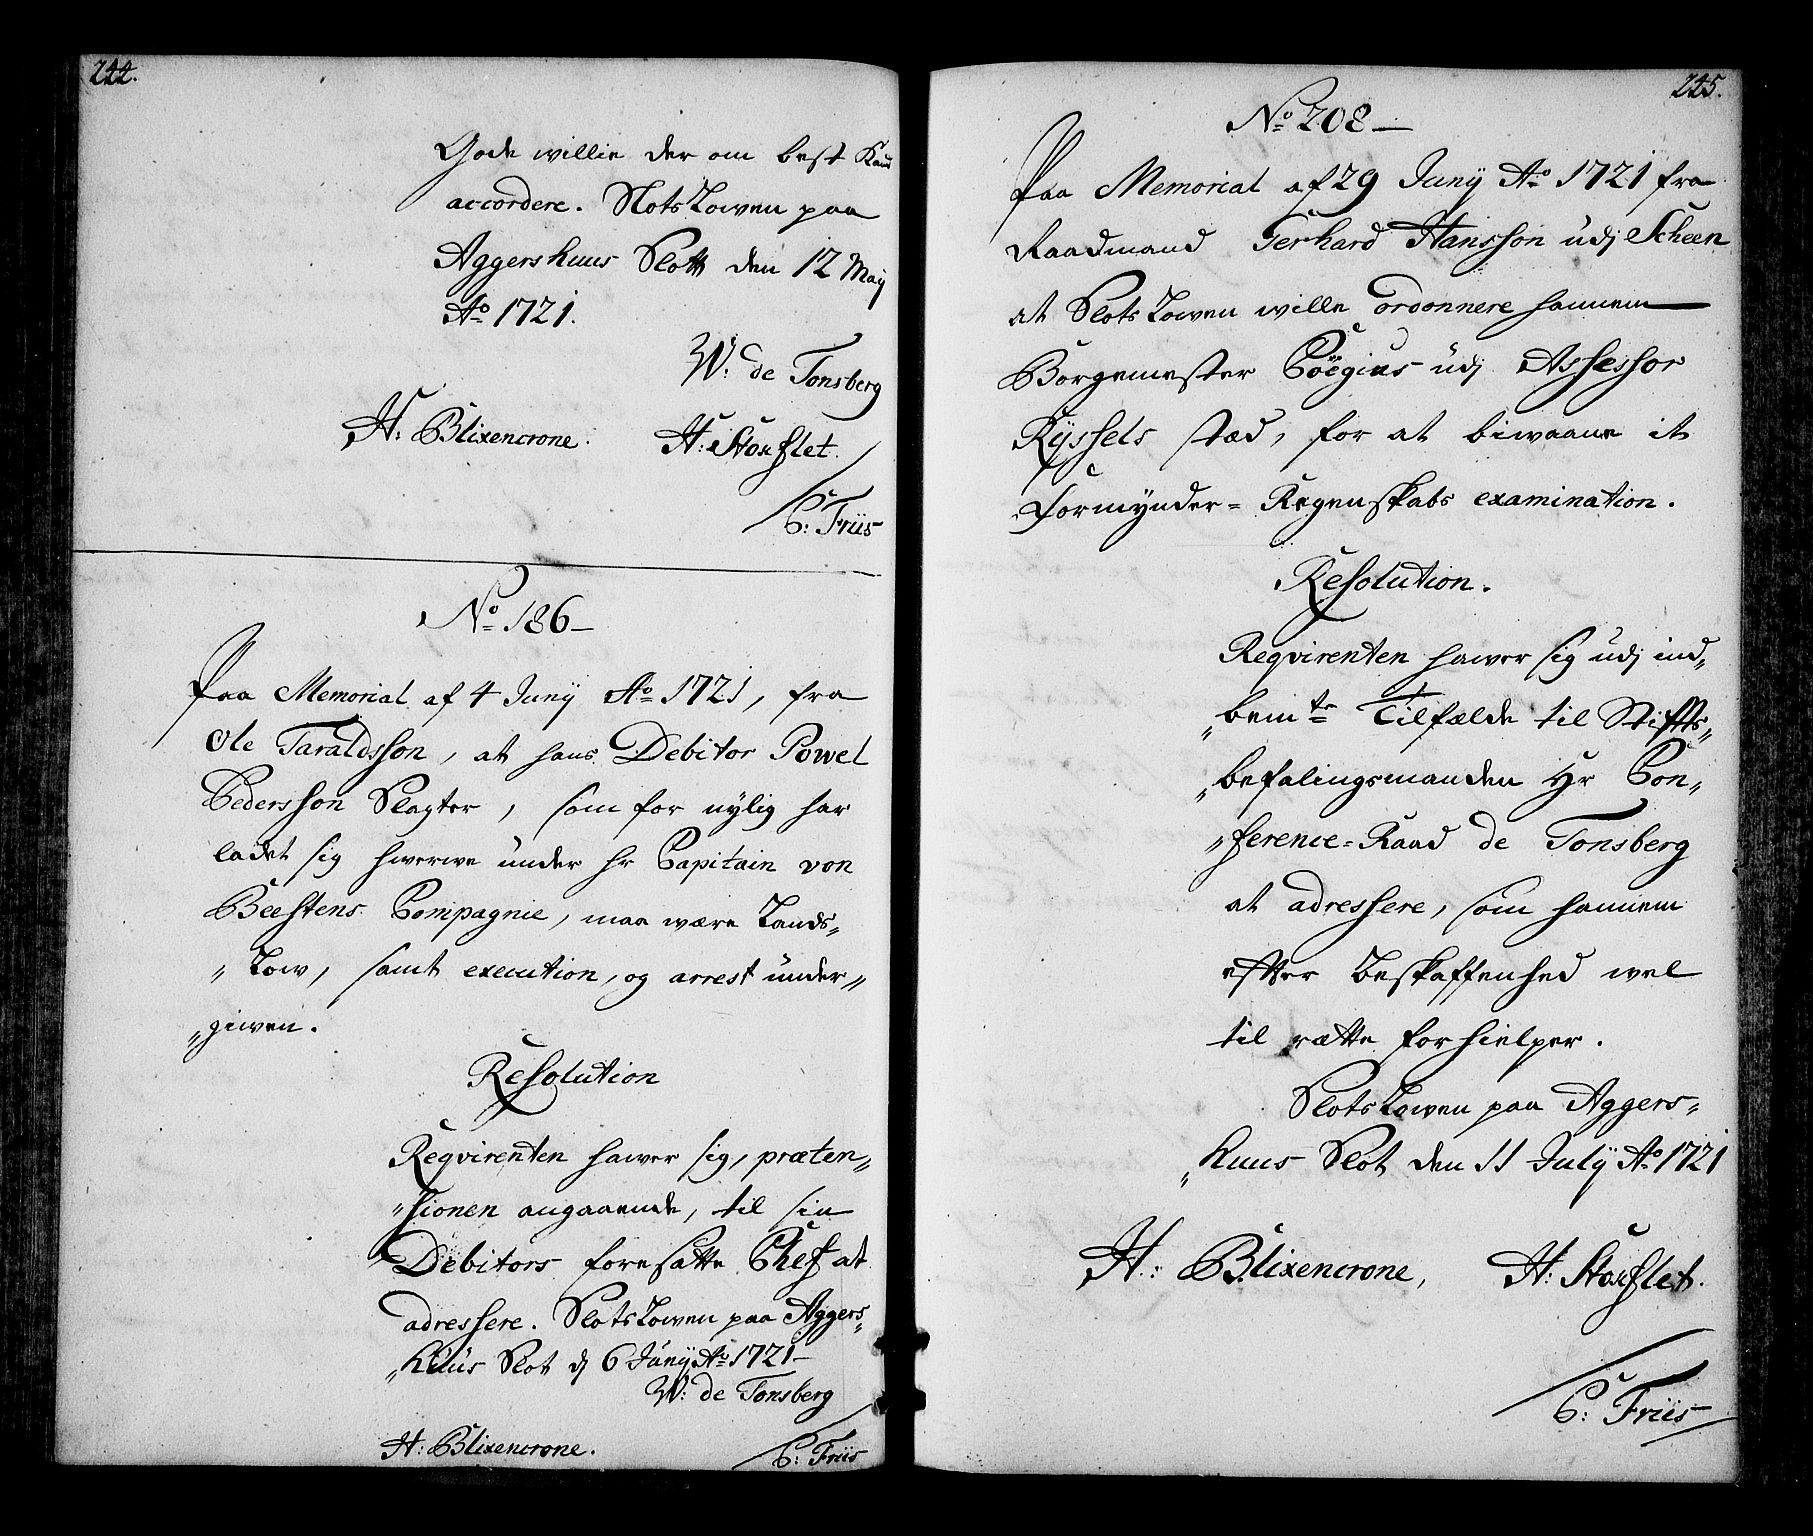 244.
Gode willie der om best Kand
accordere. SlotsLowen paa
Aggershuus Slott den 12 Maij
Ao 1721.
W: de Tonsberg
H: Blixencrone. H: Stoxflet.
C: Friis
No 186
Paa Memorial af 4 Junij Ao 1721, fra
Ole Taraldsson, at hans Debitor Powel
Pedersson Slagter, som for nylig har
ladet sig hwerwe under hr Capitain von
Beestens Compagnie, maa wære Lands„
„Low, samt execution, og arrest under„
„given.
Resolution
Reqvirenten hawer sig, præten„
„sionen angaaende, til sin
Debitors foresatte Chef at
adressere. SlotsLowen paa Aggers„
„huus Slot d 6 Junij Ao 1721
W: de Tonsberg
H: Blixencrone. C: Friis
245.
No 208
Paa Memorial af 29 Junij Ao 1721 fra
Raadmand Gerhard Hansson udj Scheen
at SlotsLowen wille ordonnere hannem
Borgemester Coëgius udj Assessor
Ryssels stæd, for at biwaane it
Formynder = Regenskabs examination.
Resolution.
Reqvirenten hawer sig udj ind„
„bemte Tilfælde til Stiffts„
„befalingsmanden Hr Con„
„ference=Raad de Tonsberg
at adressere, som hannem
efter Beskaffenhed wel
til rætte forhielper.
SlotsLowen paa Aggers„
„huus Slot den 11 Julij Ao 1721
H: Blixencrone, H: Stoxflet.
C: Friis